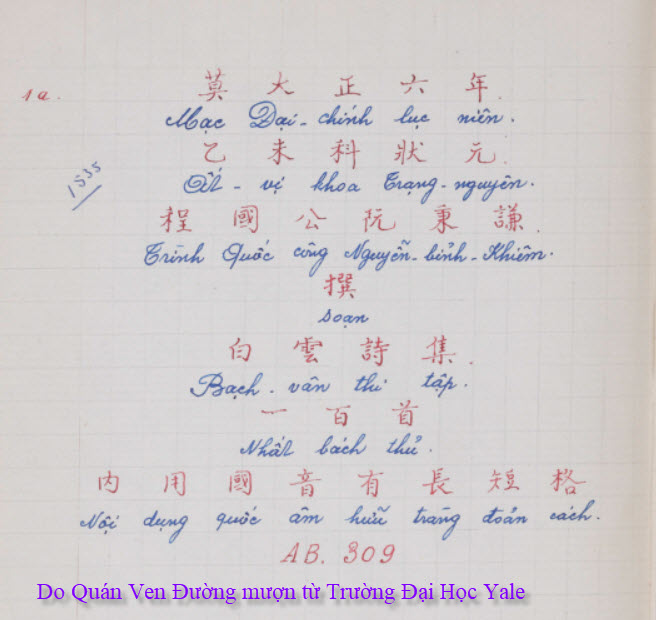 1a.
莫大正六年.
Mạc Đại-chính lục niên.
乙未科狀元.
Ất-vị khoa Trạng-nguyên.
1535
程國公阮秉謙.
Trình Quốc công Nguyễn-bỉnh-Khiêm.
撰
soạn
白雲詩集.
Bạch-vân thi tập.
一百首
Nhất bách thủ.
内用國音有長短格
Nội dụng quốc âm hữu tràng đoản cách.
AB. 309
Do Quán Ven Đường mượn từ Trường Đại Học Yale